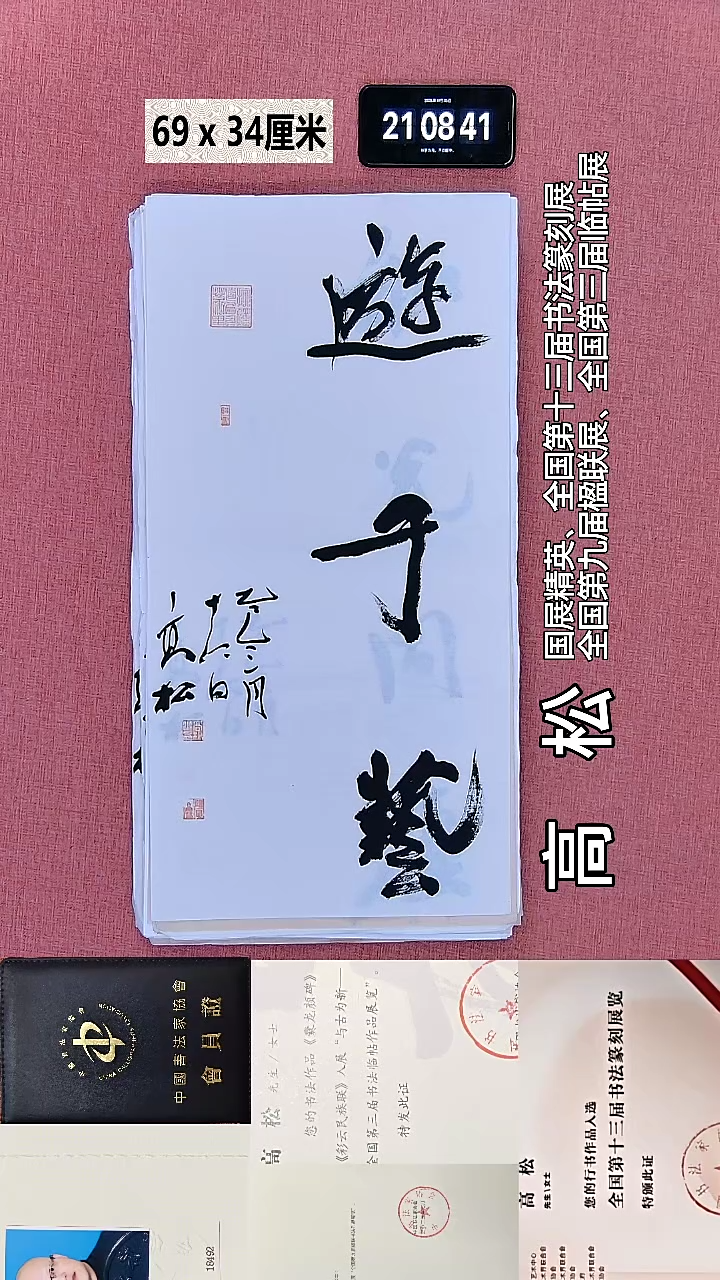 69 x 34厘米
21 08 41
遊于藝
十六日
高松
国展精英、全国第十三届书法篆刻展
全国第九届楹联展、全国第三届临帖展
高 松
中國書法家協會
會員證
高 松 先生/女士
您的书法作品《爨龙颜碑》
《彩云民族联》入展“与古为新——
全国第三届书法临帖作品展览”。
特发此证
18492
高 松 先生\女士
您的行书作品入选
全国第十三届书法篆刻展览
特颁此证